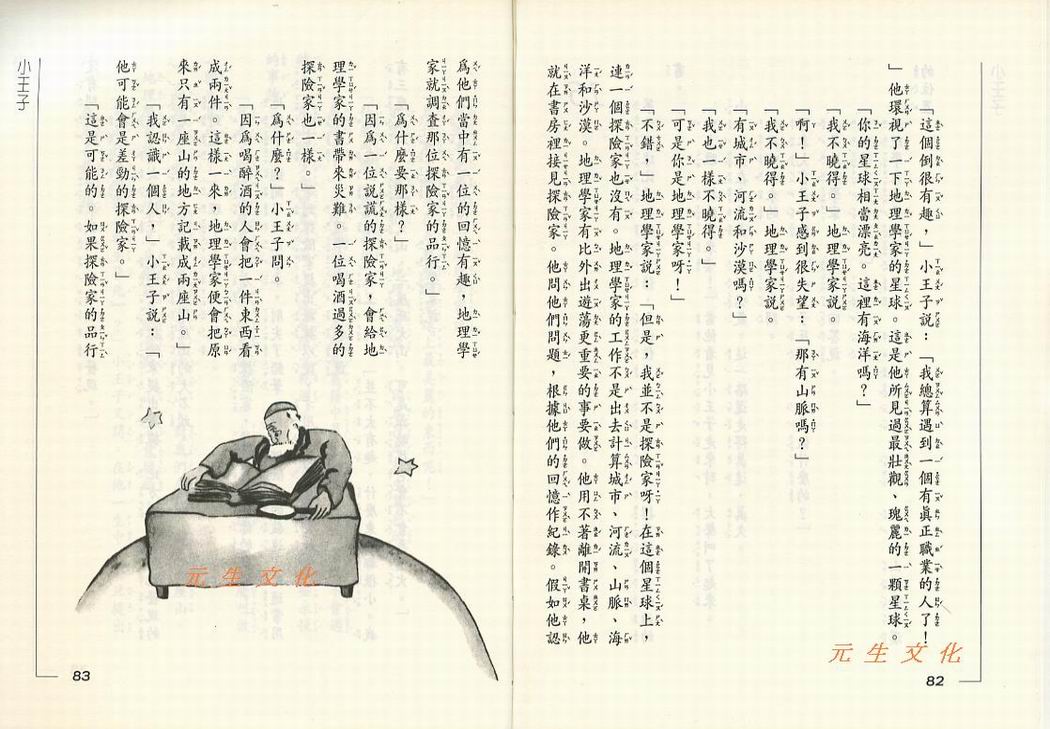 「這個倒很有趣，」小王子說：「我總算遇到一個有眞正職業的人了！
」他環視了一下地理學家的星球。這是他所見過最壯觀、瑰麗的一顆星球。
「你的星球相當漂亮。這裡有海洋嗎？」
「我不曉得。」地理學家說。
「啊！」小王子感到很失望：「那有山脈嗎？」
「我不曉得。」地理學家說。
「有城市、河流和沙漠嗎？」
「我也一樣不曉得。」
「可是你是地理學家呀！」
「不錯，」地理學家說：「但是，我並不是探險家呀！在這個星球上，
連一個探險家也沒有。地理學家的工作不是出去計算城市、河流、山脈、海
洋和沙漠。地理學家有比外出遊蕩更重要的事要做。他用不著離開書桌，他
就在書房裡接見探險家。他問他們問題，根據他們的回憶作紀錄。假如他認
82
元生文化
小王子
爲他們當中有一位的回憶有趣，地理學
家就調查那位探險家的品行。」
「爲什麼要那樣？」
「因爲一位說謊的探險家，會給地
理學家的書帶來災難。一位喝酒過多的
探險家也一樣。」
「爲什麼？」小王子問。
「因爲喝醉酒的人會把一件東西看
成兩件。這樣一來，地理學家便會把原
來只有一座山的地方記載成兩座山。」
「我認識一個人，」小王子說：「
他可能會是差勁的探險家。」
「這是可能的。如果探險家的品行
元生文化
83